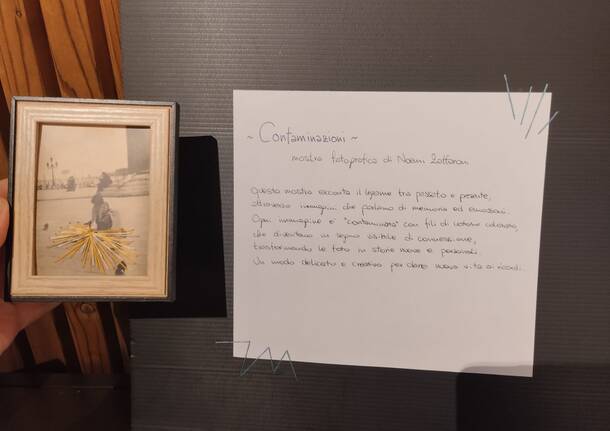 ~ Contaminazioni ~
mostra fotografica di Noemi Zottoron
Questa mostra racconta il legame tra passato e presente,
attraverso immagini che parlano di memoria ed emozioni.
Ogni immagine è "contaminata" con fili di cotone colorato,
che diventano un segno visibile di connessione,
trasformando le foto in storie nuove e personali.
Un modo delicato e creativo per dare nuova vita ai ricordi.